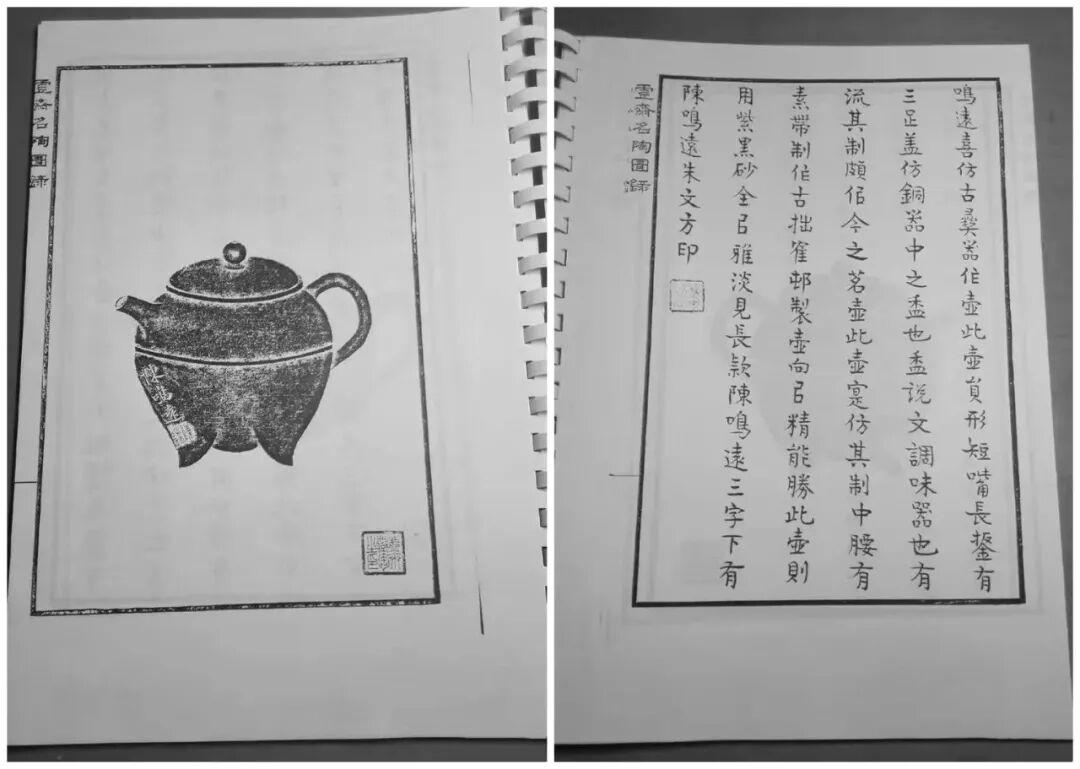 齋名陶圖錄
陳鳴遠
齋名陶圖錄
鳴遠喜仿古彝器作壺此壺員形短嘴長鋬有
三足盖仿銅器中之盉也盉說文調味器也有
流其制頗佀今之茗壺此壺寔仿其制中腰有
素帶制作古拙隺邨製壺向㠯精能勝此壺則
用紫黑砂全㠯雅淡見長款陳鳴遠三字下有
陳鳴遠朱文方印